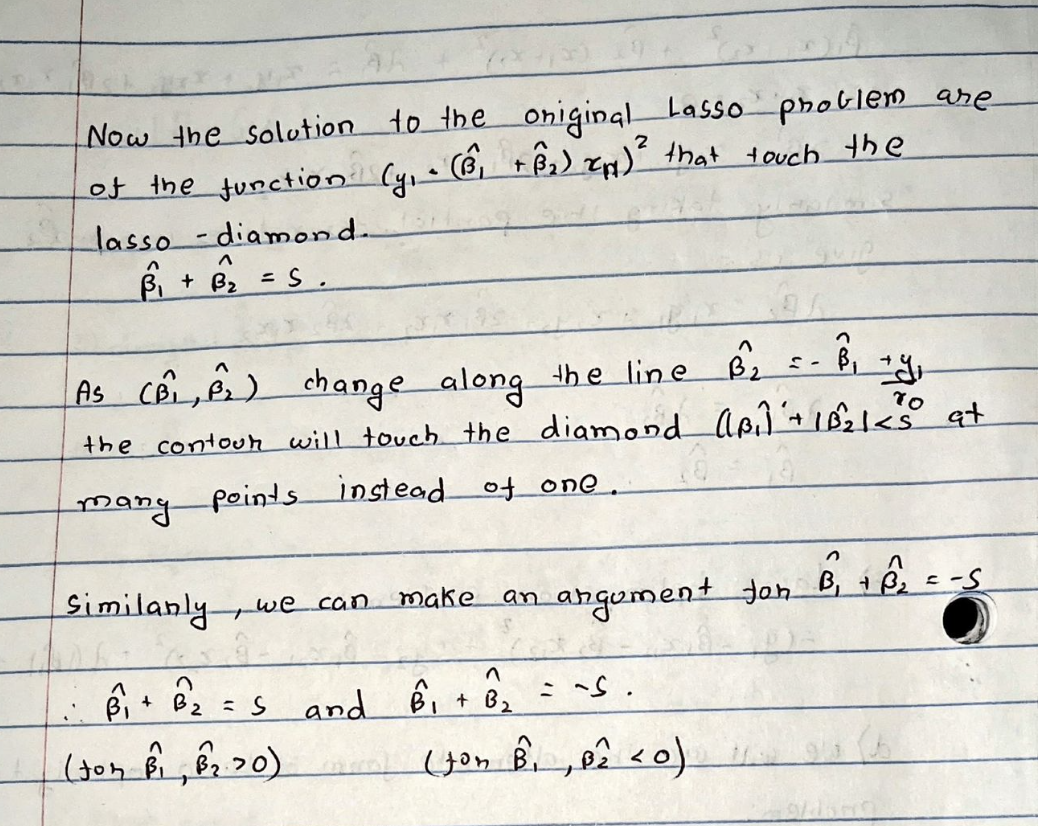 Now the solution to the original Lasso problem are
of the function (y₁ - (β̂₁ + β̂₂) x₁₁)² that touch the
lasso - diamond.
β̂₁ + β̂₂ = s.
As (β̂₁, β̂₂) change along the line β̂₂ = - β̂₁ + y₁
the contour will touch the diamond (|β̂₁| + |β̂₂| < s at
many points instead of one.
Similarly, we can make an argument for β̂₁ + β̂₂ = -s
∴ β̂₁ + β̂₂ = s and β̂₁ + β̂₂ = -s.
(for β̂₁, β̂₂ > 0) (for β̂₁, β̂₂ < 0)